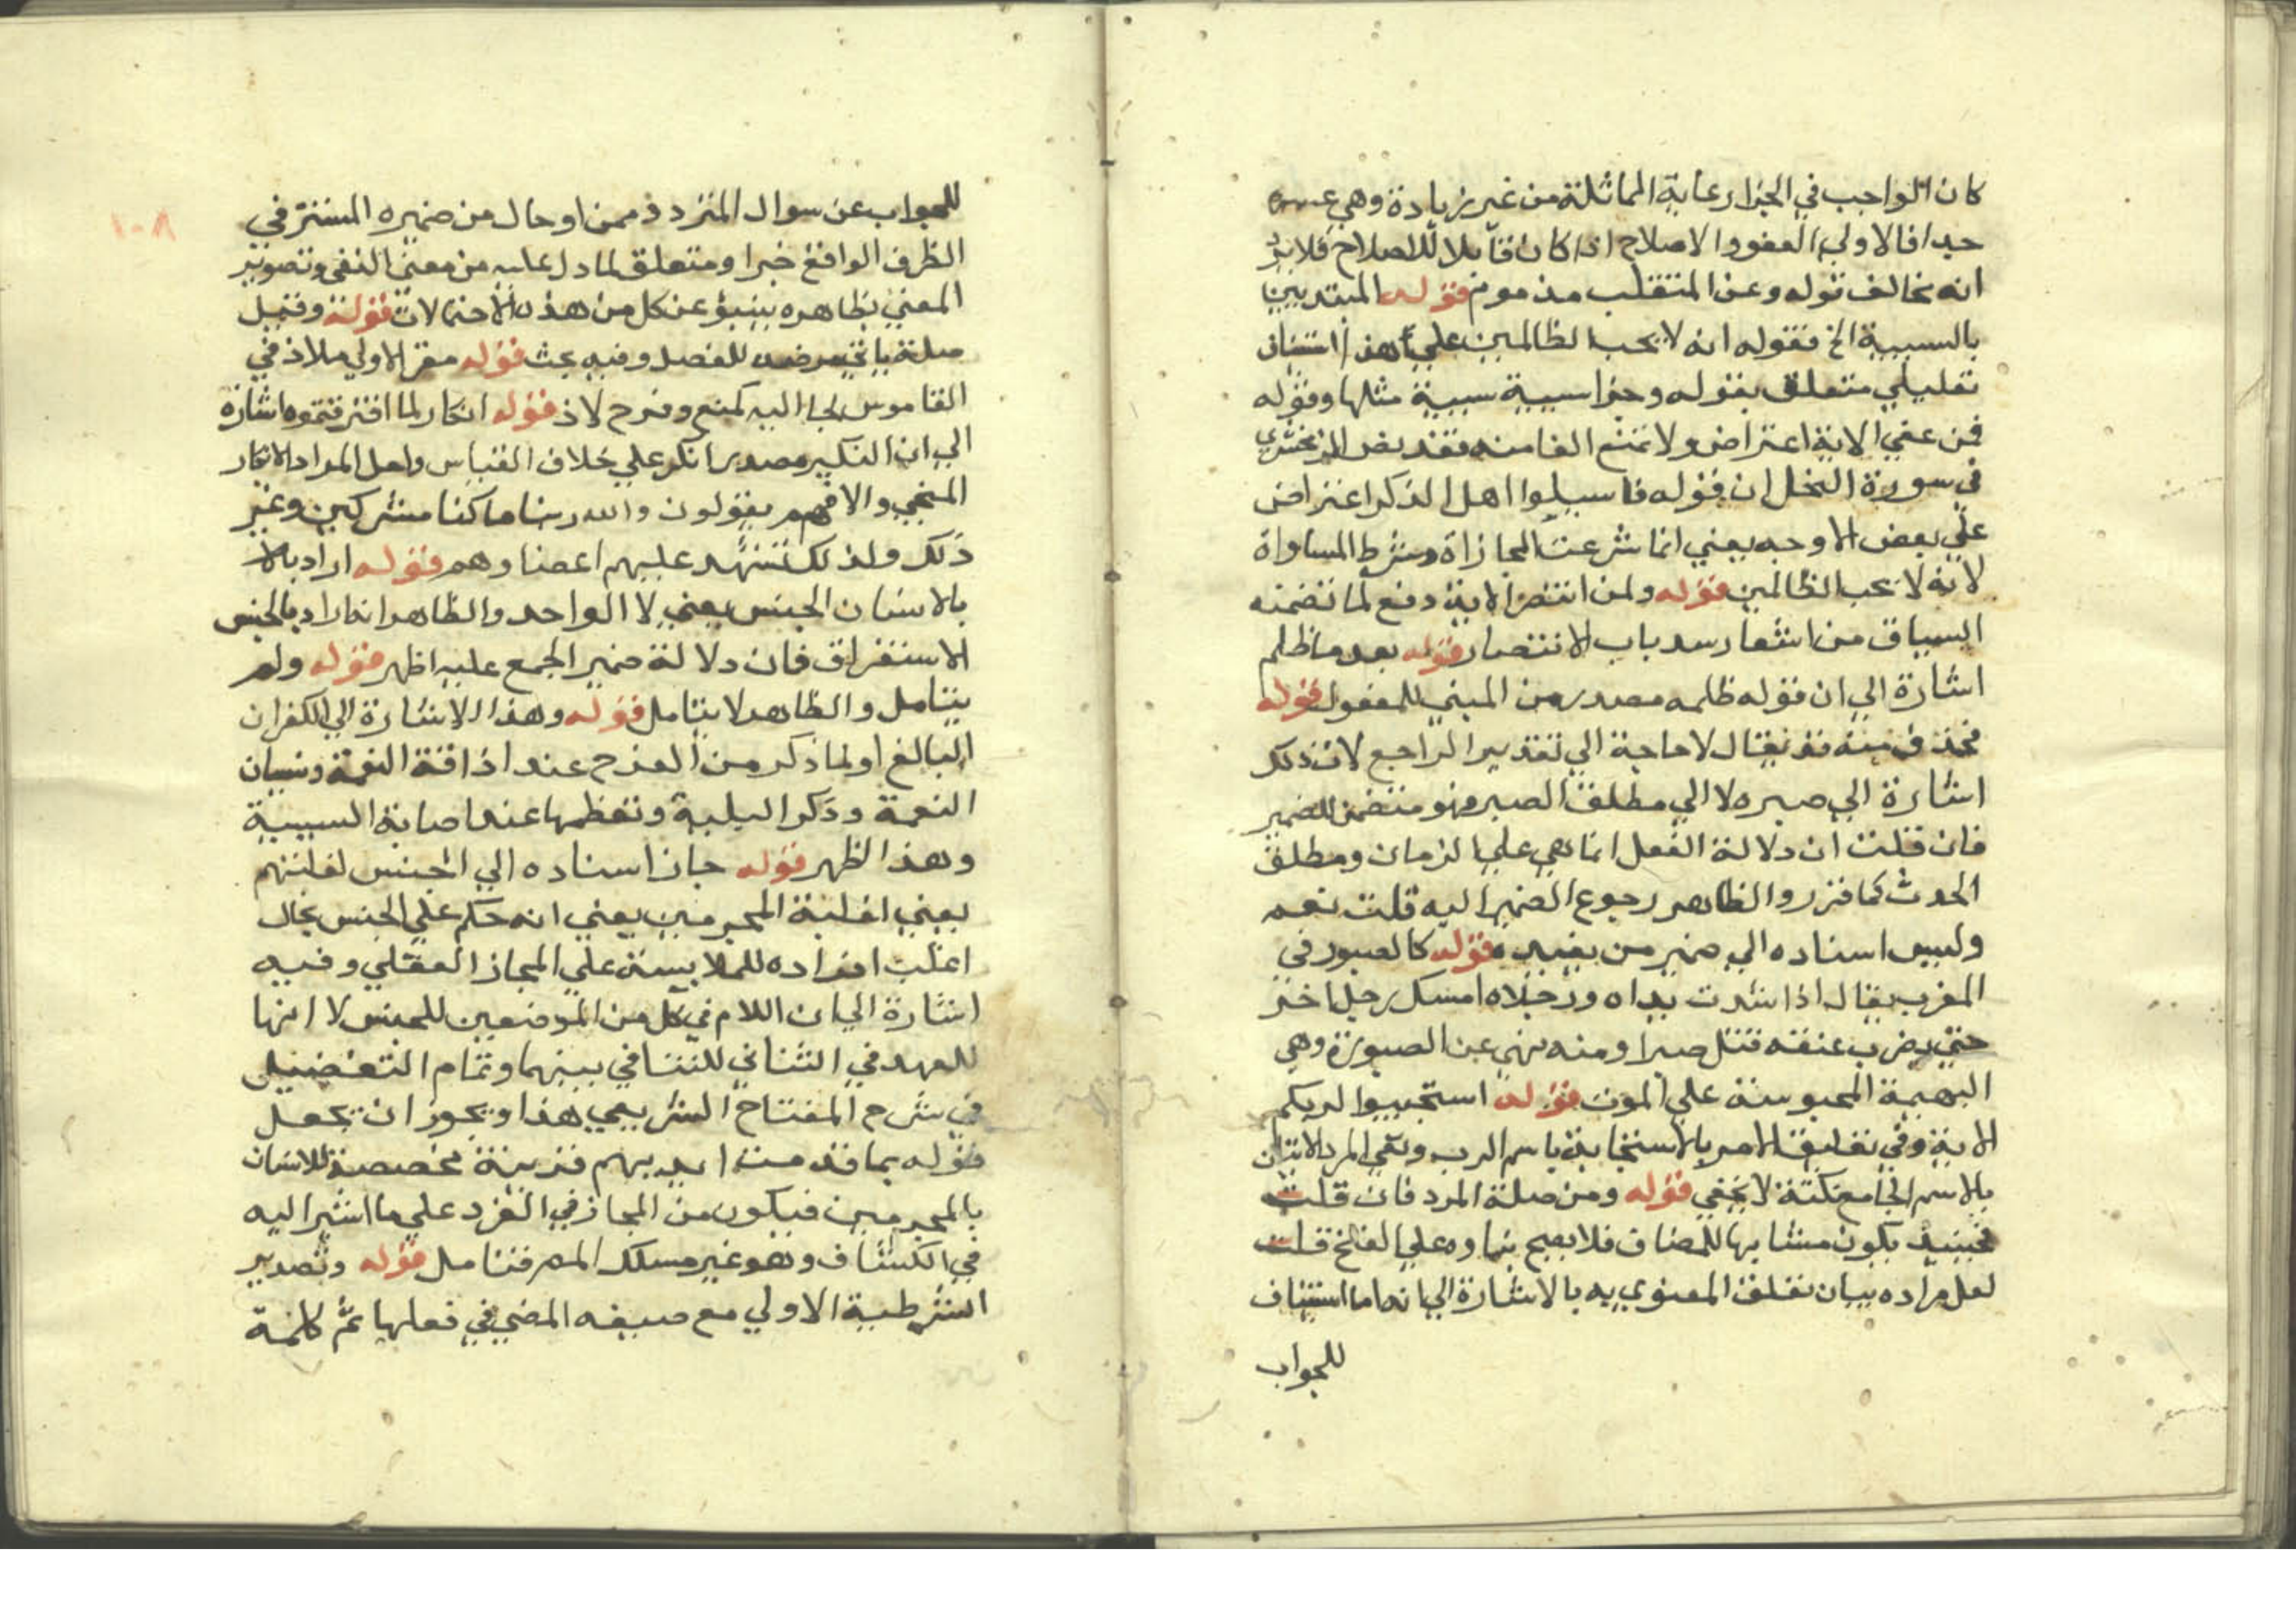 كان الواجب في الجزا رعاية المماثلة من غير زيادة وهي عسرة
جدا فالاولي العفو والاصلاح اذا كان قابلا للاصلاح فلا يرد
انه يخالف قوله وعن المتغلب مذموم قوله المبتديين
بالسيية الخ فقوله انه لا يحب الظالمين علي هذا استيناف
تعليلي متعلق بقوله وجزا سيية سيية مثلها وقوله
فمن عفي الاية اعتراض ولا تمنع الفا منه فقد نص الزمخشري
في سورة النحل ان قوله فاسيلوا اهل الذكر اعتراض
علي بعض الاوجه يعني انما شرعت المجازاة وشرط المساواة
لانه لا يحب الظالمين قوله ولمن انتصر الاية دفع لما تضمنه
السياق من اشعار سد باب الانتصار قوله بعد ما ظلم
اشارة الي ان قوله ظلمه مصدر من المبني للمفعول قوله
فحذف منه قد يقال لا حاجة الي تقدير الراجع لان ذلك
اشارة الي صبره لا الي مطلق الصبر فهو متضمن للضمير
فان قلت ان دلالة الفعل انما هي علي الزمان ومطلق
الحدث كما قزر والظاهر رجوع الضمير اليه قلت نعم
وليس اسناده الي ضمير من يفيده قوله كالصبور في
المغرب يقال اذا شدت يداه ورجلاه امسك رجل اخر
حتي يضرب عنقه قتل صبرا ومنه نهي عن الصبورة وهي
البهيمة المحبوسة علي الموت قوله استجيبوا لربكم
الاية وفي تعليق الامر بالاستجابة باسم الرب ونفي المرد الاتيان
بالاسم الجامع نكتة لا يخفي قوله ومن صلة المرد فان قلت
فحينيذ يكون مشابها للمضاف فلا يصح بناوه علي الفتح قلت
لعل مراده بيان تعلق المعنوي به بالاشارة الي انه اما استيناف
للجواب
للجواب عن سوال المتردد ذ ممن او حال من ضميره المستتر في
الظرف الواقع خبرا ومتعلق لما دل عليه من معني النفي وتصوير
المعني بظاهره ينبؤ عن كل من هذه الاحتمالات قوله وقيل
صلة ياتي مرضه للفصل وفيه بحث قوله مقر الاولي ملاذ في
القاموس لجا اليه كمنع وفرح لاذ قوله انكار لما اقترفتموه اشارة
الي ان النكير مصدر انكر علي خلاف القياس ولعل المراد الانكار
المنجي والا فهم يقولون والله ربنا ما كنا مشركين وغير
ذلك ولذلك تشهد عليهم اعضاوهم قوله اراد بالا
بالانسان الجنس يعني لا الواحد والظاهر انه اراد بالجنس
الاستغراق فان دلالة ضمير الجمع عليه اظهر قوله ولم
يتامل والظاهر لا يتامل قوله وهذا الاشارة الي الكفران
البالغ اولما ذكر من الفرح عند اذاقة النعمة ونسيان
النعمة وذكر البلية وتعظمها عند اصابة السيية
وهذا اظهر قوله جاز اسناده الي الجنس لغلبتهم
يعني اغلبية المجرمين يعني انه حكم علي الجنس بحال
اغلب افراده للملابسة علي المجاز العقلي وفيه
اشارة الي ان اللام في كل من الموضعين للجنس لا انها
للعهد في الثاني للتنافي بينهما وتمام التفضيل
في شرح المفتاح الشريفي هذا ويجوز ان يجعل
قوله بما قدمت ايديهم قرينة مخصصة للانسان
بالمجرمين فيكون من المجاز في الفرد علي ما اشير اليه
في الكشاف وهو غير مسلك المص فتامل قوله وتصدير
الشرطية الاولي مع صيغه المضي في فعلها ثم كلمة
١٠٨